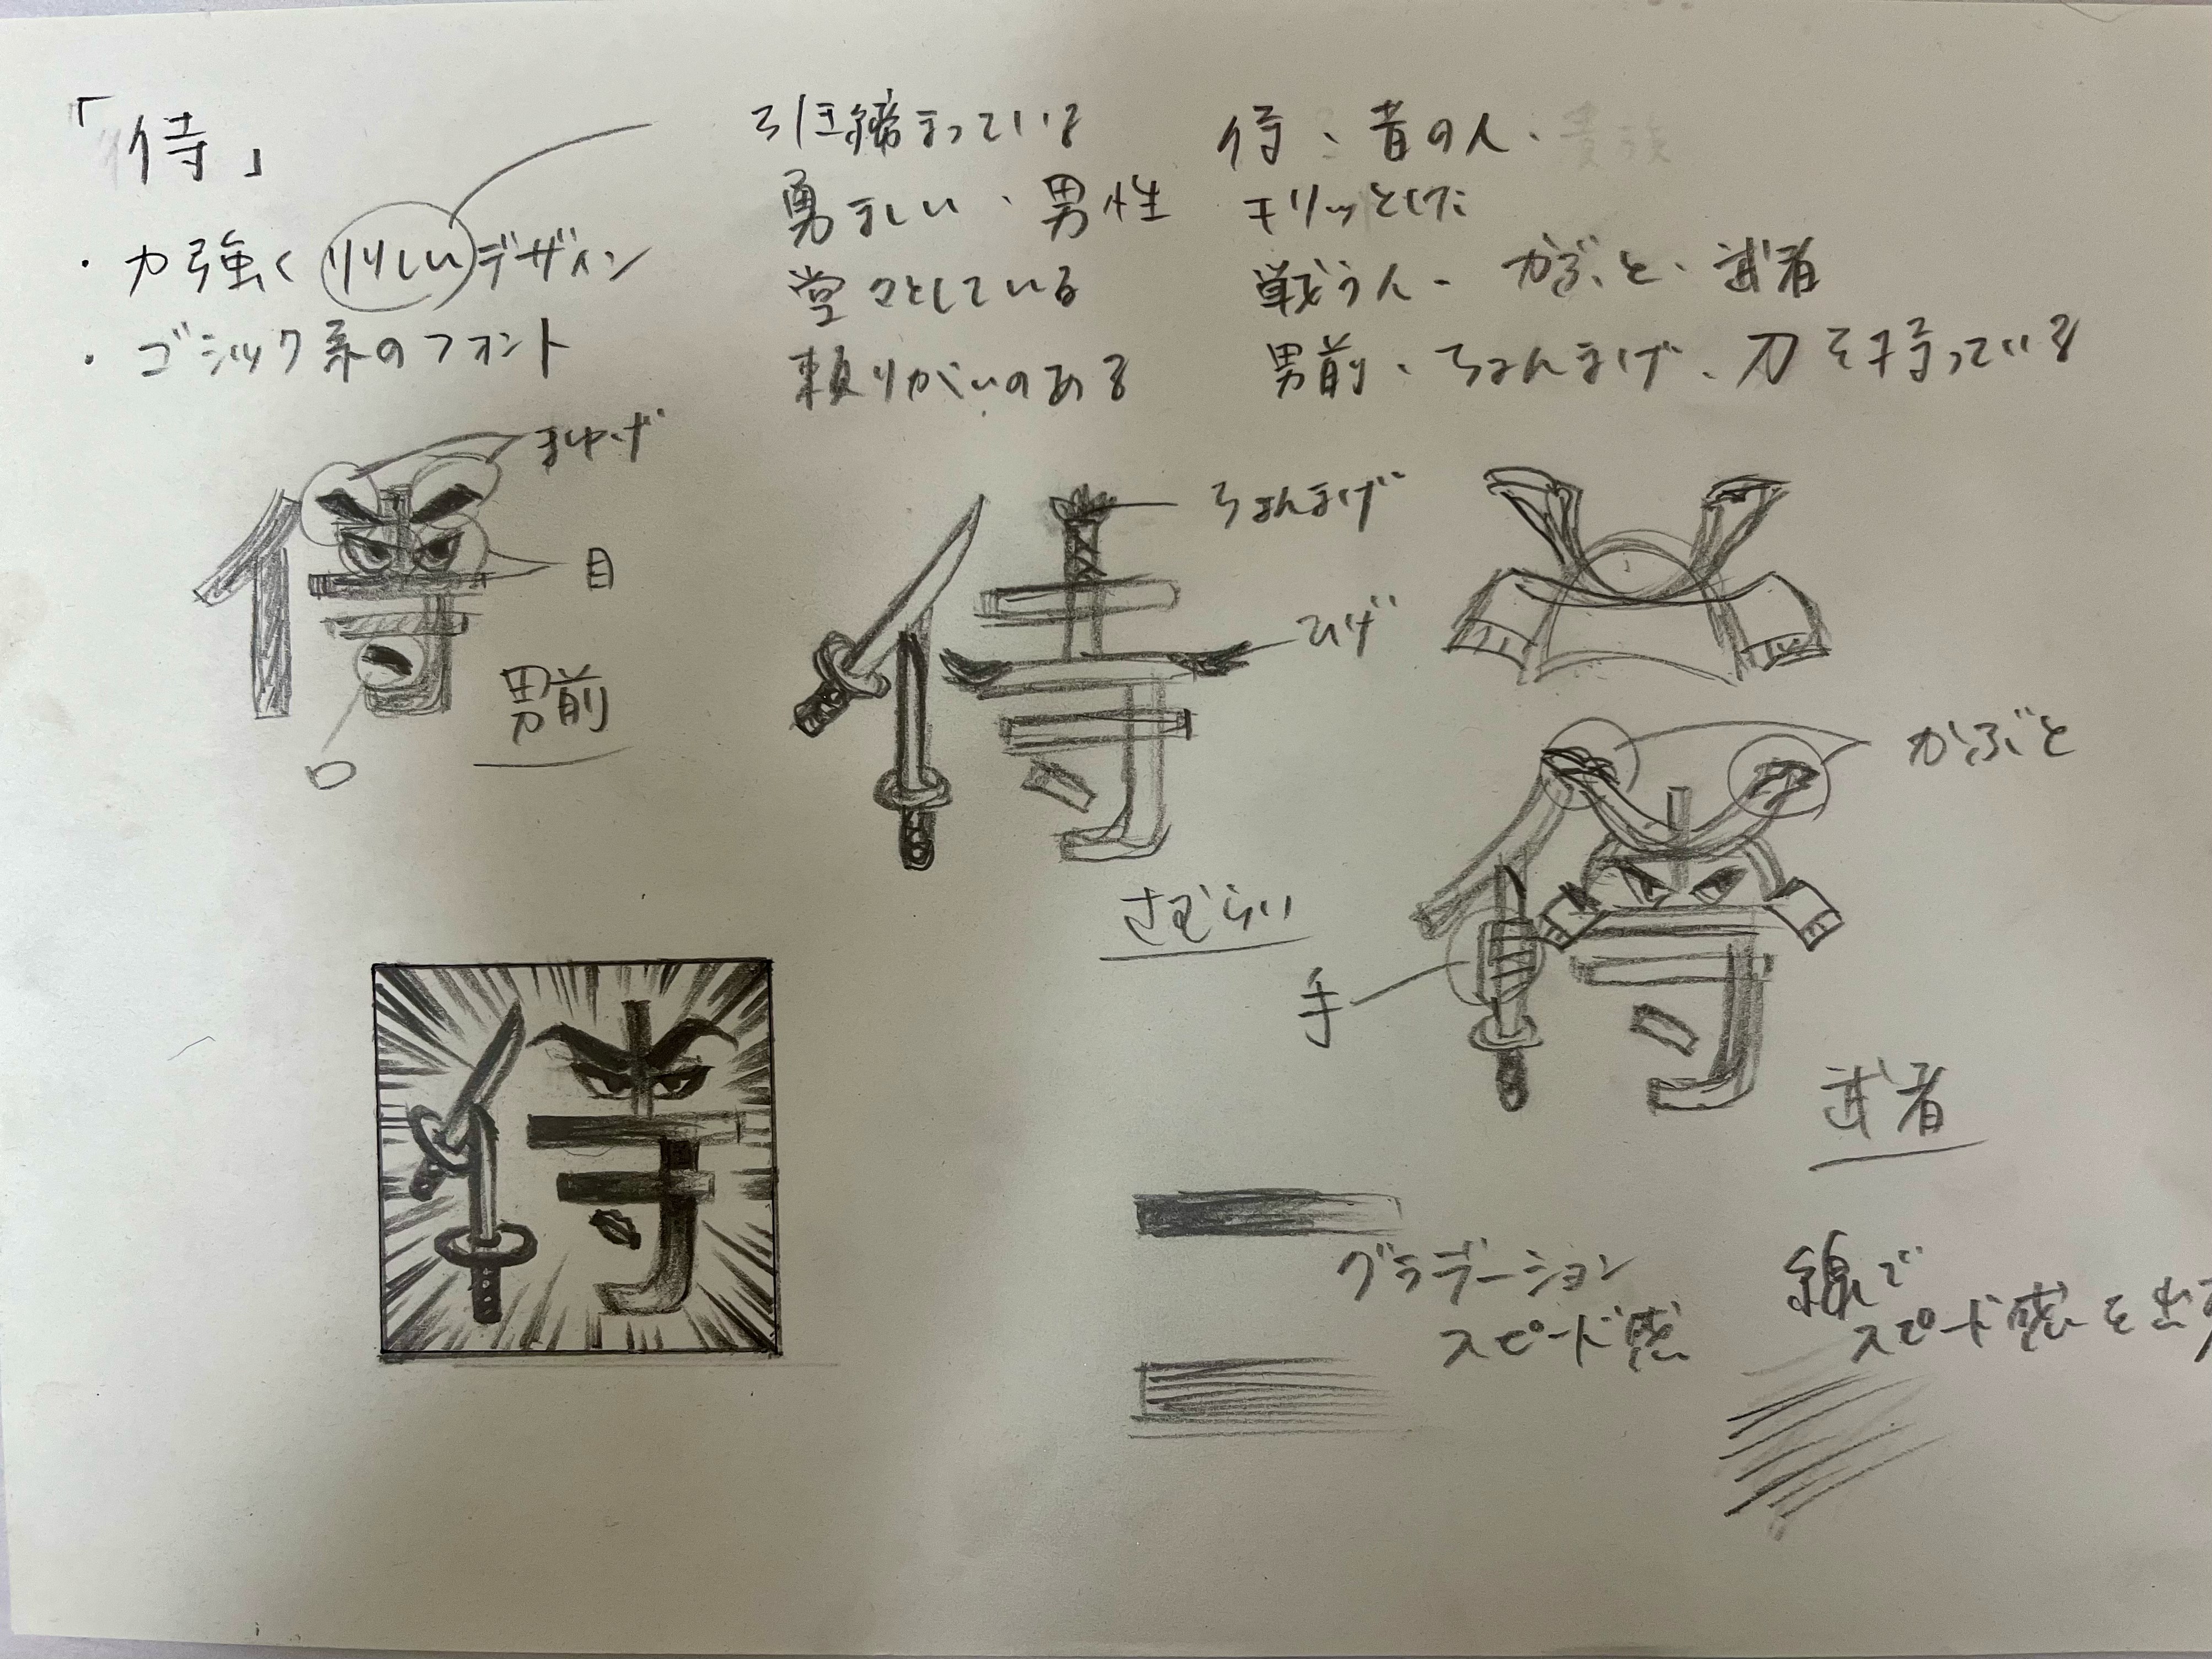 「侍」
・力強くりりしいデザイン
・ゴシック系のフォント
引き締まっている
勇ましい、男性
堂々としている
頼りがいのある
侍、昔の人、
キリッとした
戦う人、かぶと、武者
男前、ちょんまげ、刀を持っている
まゆげ
目
口
男前
ちょんまげ
ひげ
さむらい
かぶと
手
武者
グラデーション
スピード感
線で
スピード感を出す